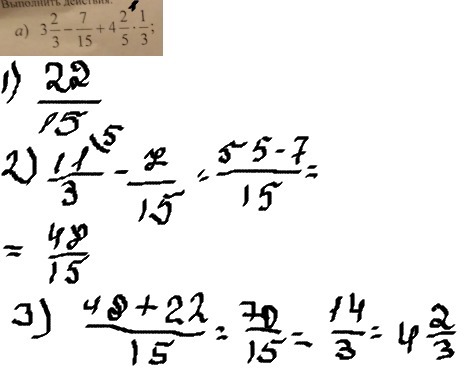 Выполнить действия:
а) 3 2/3 − 7/15 + 4 2/5 · 1/3;
1) 22/15
2) 11/3 (5 − 7/15 = 55-7/15 =
= 48/15
3) 48+22/15 = 70/15 = 14/3 = 4 2/3